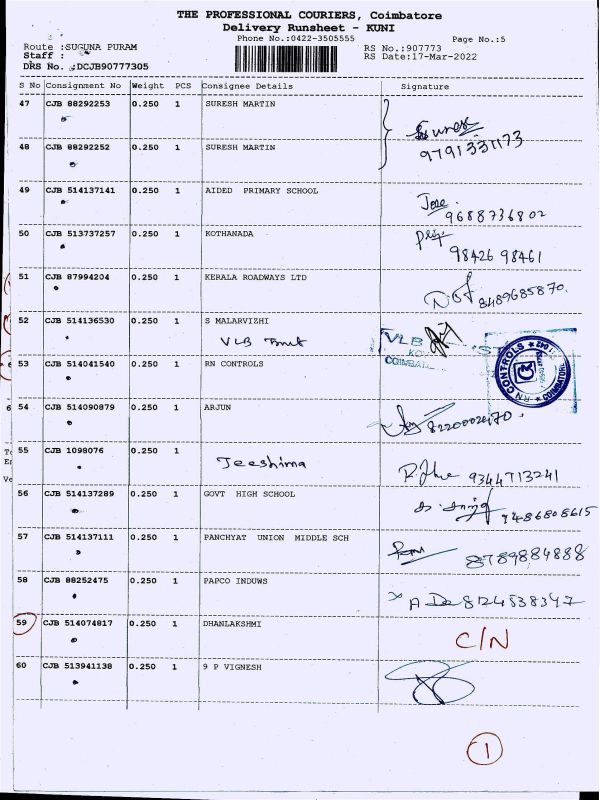 THE PROFESSIONAL COURIERS, Coimbatore
Delivery Runsheet - KUNI
Phone No.:0422-3505555 Page No.:5
Route :SUGUNA PURAM RS No.:907773
Staff : RS Date:17-Mar-2022
DRS No. :DCJB90777305
S No Consignment No Weight PCS Consignee Details Signature
47 CJB 88292253 0.250 1 SURESH MARTIN
9791331173
48 CJB 88292252 0.250 1 SURESH MARTIN
49 CJB 514137141 0.250 1 AIDED PRIMARY SCHOOL
Jose 9688736802
50 CJB 513737257 0.250 1 KOTHANADA
98426 98461
51 CJB 87994204 0.250 1 KERALA ROADWAYS LTD
8489685870
52 CJB 514136530 0.250 1 S MALARVIZHI
VLB Trust VLB
53 CJB 514041540 0.250 1 RN CONTROLS RN CONTROLS COIMBATORE
54 CJB 514090879 0.250 1 ARJUN
55 CJB 1098076 0.250 1 Jeeshima 9344713241
56 CJB 514137289 0.250 1 GOVT HIGH SCHOOL
9486808615
57 CJB 514137111 0.250 1 PANCHYAT UNION MIDDLE SCH
8789884888
58 CJB 88252475 0.250 1 PAPCO INDUWS
8124538347
59 CJB 514074817 0.250 1 DHANLAKSHMI
C/N
60 CJB 513941138 0.250 1 9 P VIGNESH
1